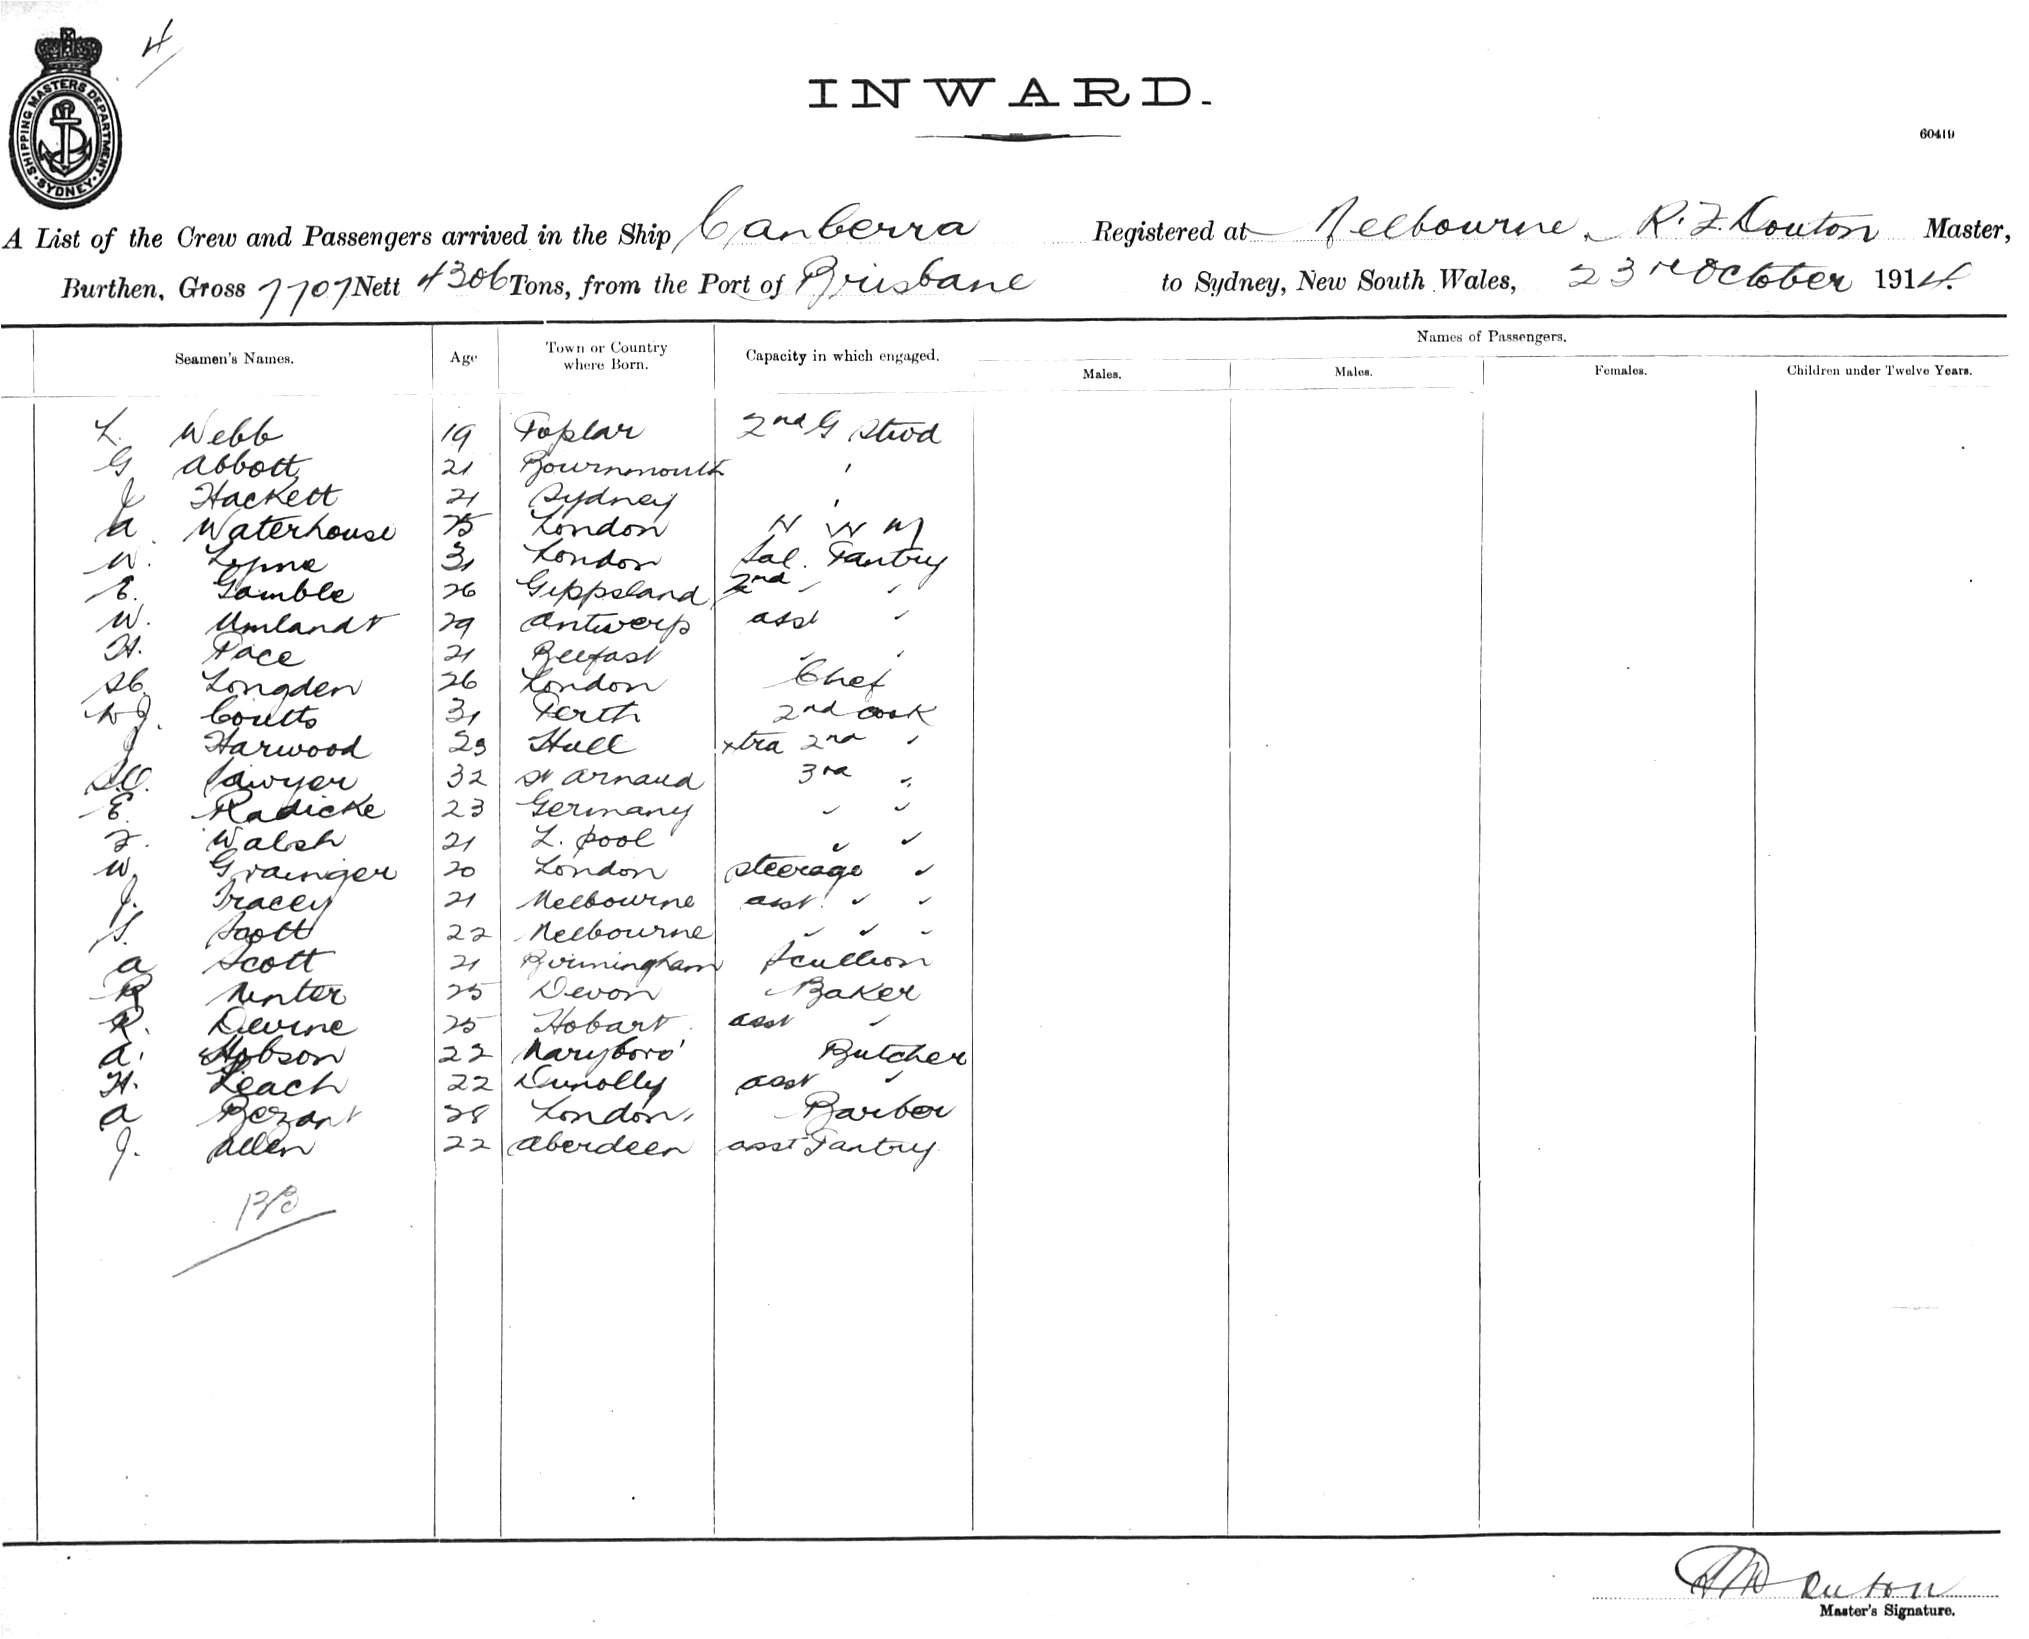 4
SHIPPING MASTERS DEPARTMENT. SYDNEY.
INWARD.
60419
A List of the Crew and Passengers arrived in the Ship Canberra Registered at Melbourne, R. F. Douton Master,
Burthen, Gross 7707 Nett 4306 Tons, from the Port of Brisbane to Sydney, New South Wales, 23rd October 1914.
Names of Passengers.
Seamen's Names. Age Town or Country where Born. Capacity in which engaged. Males. Males. Females. Children under Twelve Years.
L. Webb 19 Poplar 2nd G Stwd
G Abbott 21 Bournmouth "
J Hackett 21 Sydney "
A. Waterhouse 25 London N W M
W. 31 London Sal. Pantry
E. Gamble 26 Gippsland 2nd " "
W. Umlandt 29 Antwerp asst "
H. Pace 21 Belfast " "
Longden 26 London Chef
W J. Coutts 31 Perth 2nd cook
J Harwood 23 Hull xtra 2nd "
Sawyer 32 St Arnaud 3rd "
E. Radicke 23 Germany " "
F. Walsh 21 L. pool " "
W. Grainger 20 London steerage "
J. Tracey 21 Melbourne asst. " "
S. Scott 22 Melbourne " " "
A Scott 21 Birmingham Scullion
R 25 Devon Baker
R. Devine 25 Hobart asst "
A. Hobson 22 Maryboro' Butcher
H. Leach 22 Dunolly asst "
A Bezant 28 London, Barber
J. Allen 22 Aberdeen asst Pantry
Douton
Master's Signature.